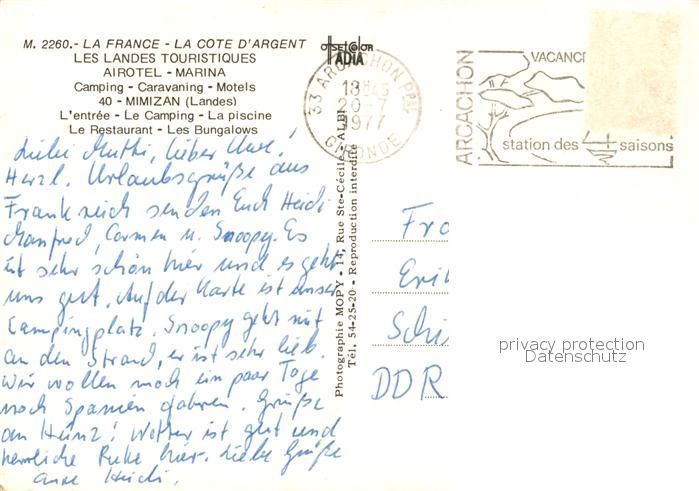 M. 2260.- LA FRANCE - LA COTE D'ARGENT
LES LANDES TOURISTIQUES
AIROTEL - MARINA
Camping - Caravaning - Motels
40 - MIMIZAN (Landes)
L'entrée - Le Camping - La piscine
Le Restaurant - Les Bungalows
Liebe Mutti, lieber Uwe!
Herzl. Urlaubsgrüße aus
Frankreich senden Euch Heidi
Manfred, Carmen u. Snoopy. Es
ist sehr schön hier und es geht
uns gut. Auf der Karte ist unser
Campingplatz. Snoopy geht mit
an den Strand, er ist sehr lieb.
Wir wollen noch ein paar Tage
noch Spanien fahren. Grüße
an Heinz! Wetter ist gut und
herrliche Ruhe hier. Liebe Grüße
Heidi.
OFFSET COLOR
ADIA
33 ARCACHON PPAL
18H45
20-7
1977
GIRONDE
ARCACHON
VACANC
station des 4 saisons
Photographie MOPY - 14, Rue Ste-Cécile - ALBI
Tél. 54-25-20 - Reproduction interdite
Fra
Eri
Schi
DDR
privacy protection
Datenschutz